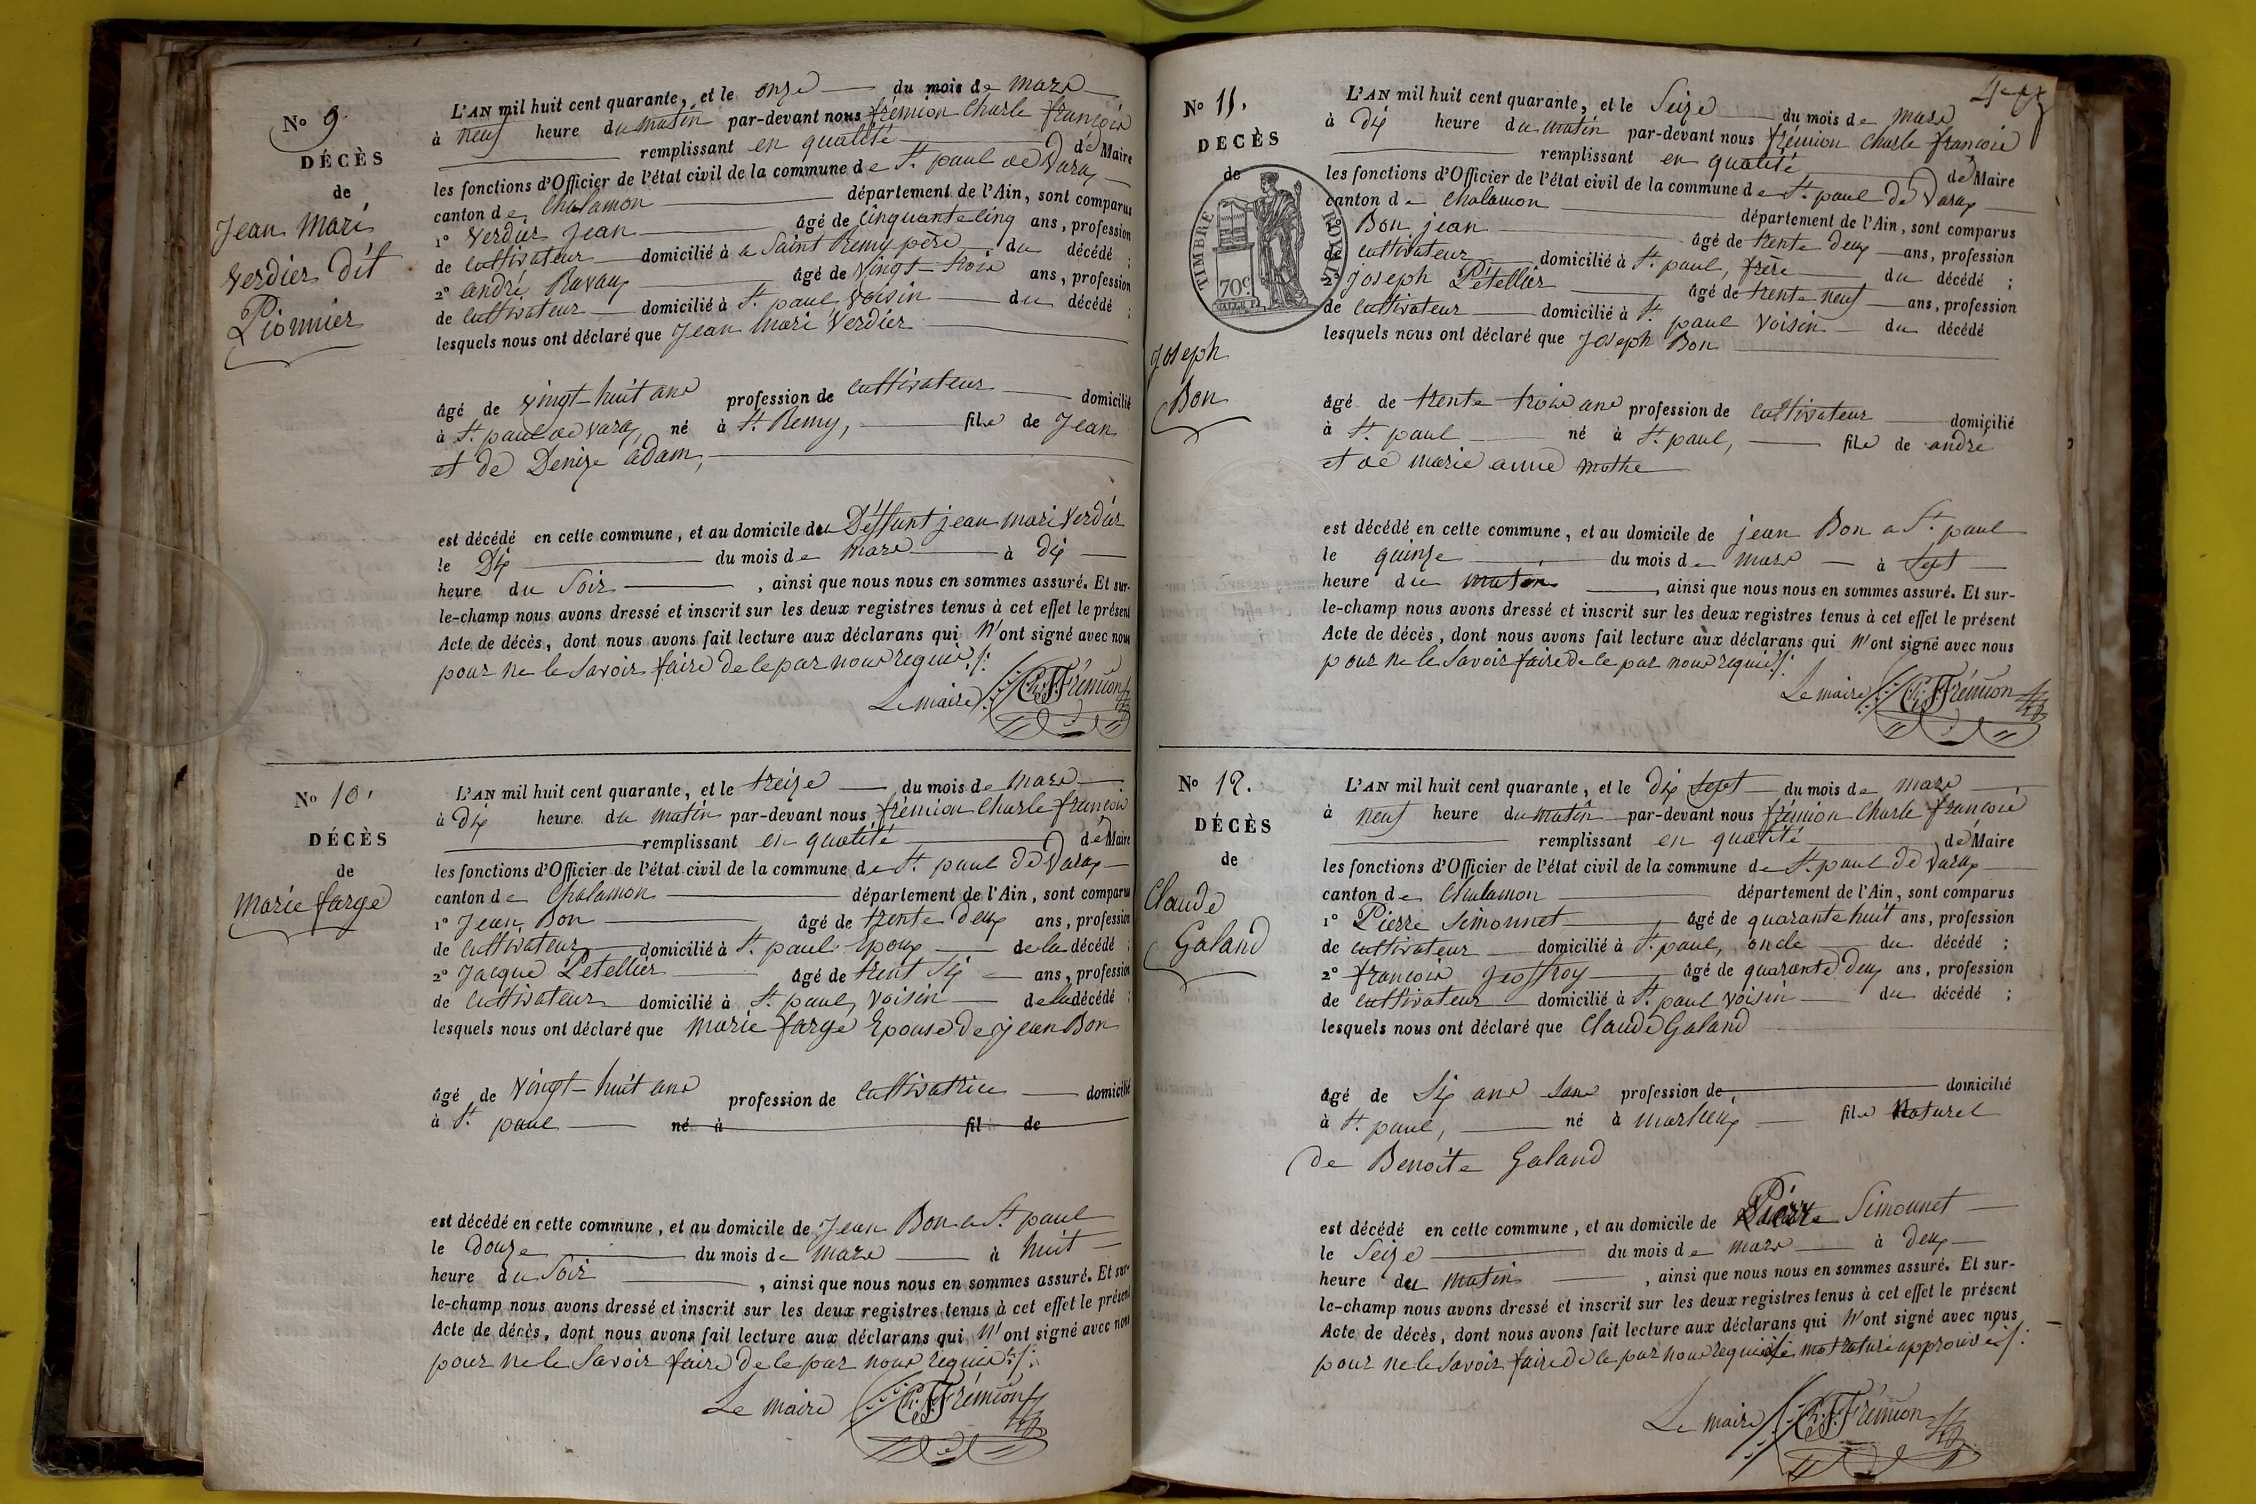 No 9.
DÉCÈS
de
Jean Mari
Verdier dit
Pionnier
L'AN mil huit cent quarante, et le onze du mois de mars
à neuf heure du matin par-devant nous frémion Charle françois
remplissant en qualité de Maire
les fonctions d'Officier de l'état civil de la commune de St. paul de Varax
canton de Chalamon département de l'Ain, sont comparus
1° Verdier Jean âgé de Cinquante cinq ans, profession
de Cultivateur domicilié à a Saint Remy père du décédé ;
2° andré Ravaux âgé de Vingt-trois ans, profession
de Cultivateur domicilié à St. paul Voisin du décédé ;
lesquels nous ont déclaré que Jean Mari Verdier
âgé de vingt-huit ans profession de Cultivateur domicilié
à St. paul de varax, né à St. Remy, fils de Jean
et de Denize adam,
est décédé en cette commune, et au domicile du Déffunt jean Mari Verdier
le Dix du mois de mars à dix
heure du Soir , ainsi que nous nous en sommes assuré. Et sur-
le-champ nous avons dressé et inscrit sur les deux registres tenus à cet effet le présent
Acte de décès, dont nous avons fait lecture aux déclarans qui N'ont signé avec nous
pour ne le Savoir faire de ce par nous requis
Le maire Ch. F. Frémion
No 10.
DÉCÈS
de
Marie farge
L'AN mil huit cent quarante, et le treize du mois de mars
à dix heure du matin par-devant nous frémion Charle françois
remplissant en qualité de Maire
les fonctions d'Officier de l'état civil de la commune de St. paul de Varax
canton de Chalamon département de l'Ain, sont comparus
1° Jean Bon âgé de trente Deux ans, profession
de Cultivateur domicilié à St. paul Epoux de la décédé ;
2° Jacque Petellier âgé de trent Six ans, profession
de Cultivateur domicilié à St. paul, Voisin de la décédé ;
lesquels nous ont déclaré que Marie farge Epouse De jean Bon
âgé de Vingt-huit ans profession de Cultivatrice domicilié
à St. paul né à fil de
est décédé en cette commune, et au domicile de Jean Bon a St. paul
le Douze du mois de mars à huit
heure du Soir , ainsi que nous nous en sommes assuré. Et sur-
le-champ nous avons dressé et inscrit sur les deux registres tenus à cet effet le présent
Acte de décès, dont nous avons fait lecture aux déclarans qui N'ont signé avec nous
pour ne le Savoir faire de ce par nous requis
Le maire Ch. F. Frémion
No 11.
DECÈS
de
TIMBRE ROYAL
70c
Joseph
Bon
L'AN mil huit cent quarante, et le Seize du mois de mars
à dix heure du matin par-devant nous frémion Charle françois
remplissant en qualité de Maire
les fonctions d'Officier de l'état civil de la commune de St. paul de Varax
canton de Chalamon département de l'Ain, sont comparus
1° Bon jean âgé de trente deux ans, profession
de cultivateur domicilié à St. paul, frère du décédé ;
2° joseph Petellier âgé de trente neuf ans, profession
de Cultivateur domicilié à St. paul Voisin du décédé
lesquels nous ont déclaré que Joseph Bon
âgé de trente trois ans profession de Cultivateur domicilié
à St. paul né à St. paul, fils de andré
et de marie anne mothe
est décédé en cette commune, et au domicile de jean Bon a St. paul
le quinze du mois de mars à Sept
heure du matin , ainsi que nous nous en sommes assuré. Et sur-
le-champ nous avons dressé et inscrit sur les deux registres tenus à cet effet le présent
Acte de décès, dont nous avons fait lecture aux déclarans qui N'ont signé avec nous
pour ne le Savoir faire de ce par nous requis
Le maire Ch. F. Frémion
No 12.
DÉCÈS
de
Claude
Galand
L'AN mil huit cent quarante, et le dix Sept du mois de mars
à neuf heure du matin par-devant nous frémion Charle françois
remplissant en qualité de Maire
les fonctions d'Officier de l'état civil de la commune de St. paul de Varax
canton de Chalamon département de l'Ain, sont comparus
1° Pierre Simonnet âgé de quarante huit ans, profession
de cultivateur domicilié à St. paul, oncle du décédé ;
2° francois Jeoffroy âgé de quarante Deux ans, profession
de Cultivateur domicilié à St. paul Voisin du décédé ;
lesquels nous ont déclaré que Claude Galand
âgé de Six ans sans profession de domicilié
à St. paul, né à marlieux fils Naturel
de Benoite Galand
est décédé en cette commune, et au domicile de Pierre Simonnet
le Seize du mois de mars à deux
heure du matin , ainsi que nous nous en sommes assuré. Et sur-
le-champ nous avons dressé et inscrit sur les deux registres tenus à cet effet le présent
Acte de décès, dont nous avons fait lecture aux déclarans qui N'ont signé avec nous
pour ne le Savoir faire de ce par nous requis mot raturé approuvé
Le maire Ch. F. Frémion